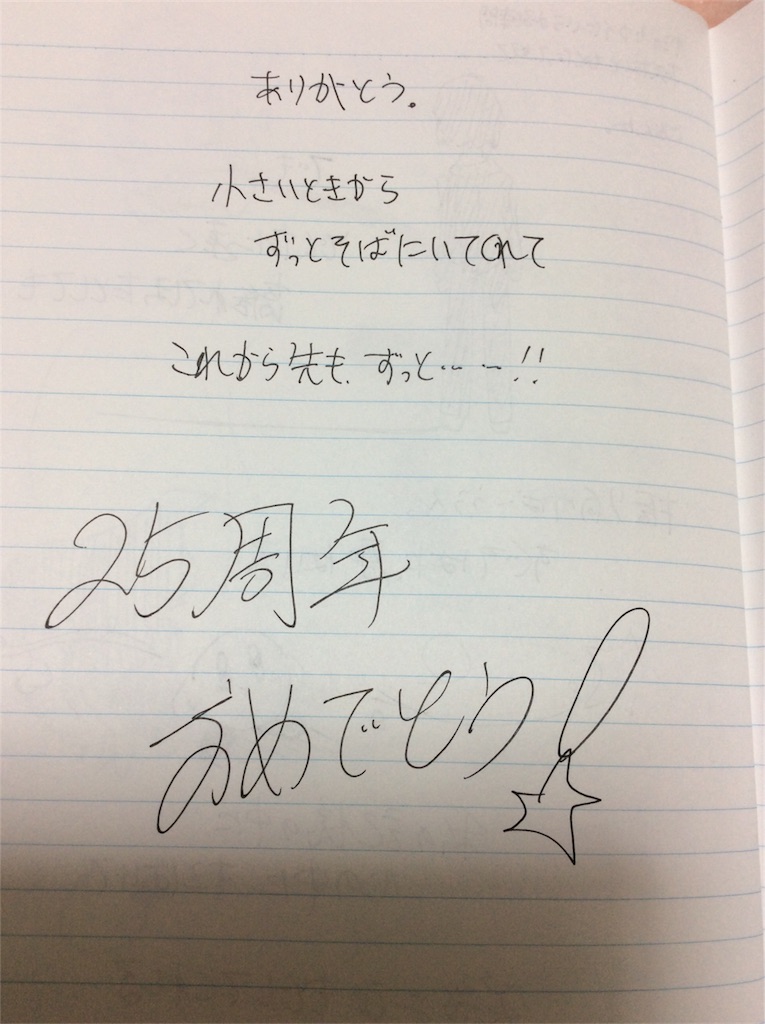 ありがとう。
小さいときから
ずっとそばにいてくれて
これから先も、ずっと……!!
25周年
おめでとう!